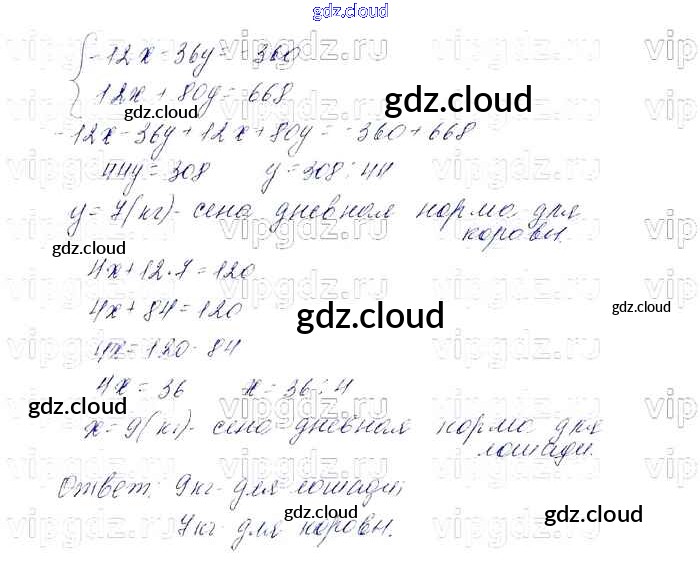 gdz.cloud
-12x - 36y = -360
12x + 80y = 668
gdz.cloud
gdz.cloud
-12x - 36y + 12x + 80y = -360 + 668
44y = 308 y = 308 : 44
y = 7 (кг) - сена дневная норма для
коровы.
gdz.cloud
4x + 12·7 = 120
4x + 84 = 120
gdz.cloud
gdz.cloud
4x = 120 - 84
4x = 36 x = 36 : 4
gdz.cloud
x = 9 (кг) - сена дневная норма для
лошади.
Ответ: 9 кг - для лошади;
7 кг - для коровы.
gdz.cloud
gdz.cloud
vipgdz.ru